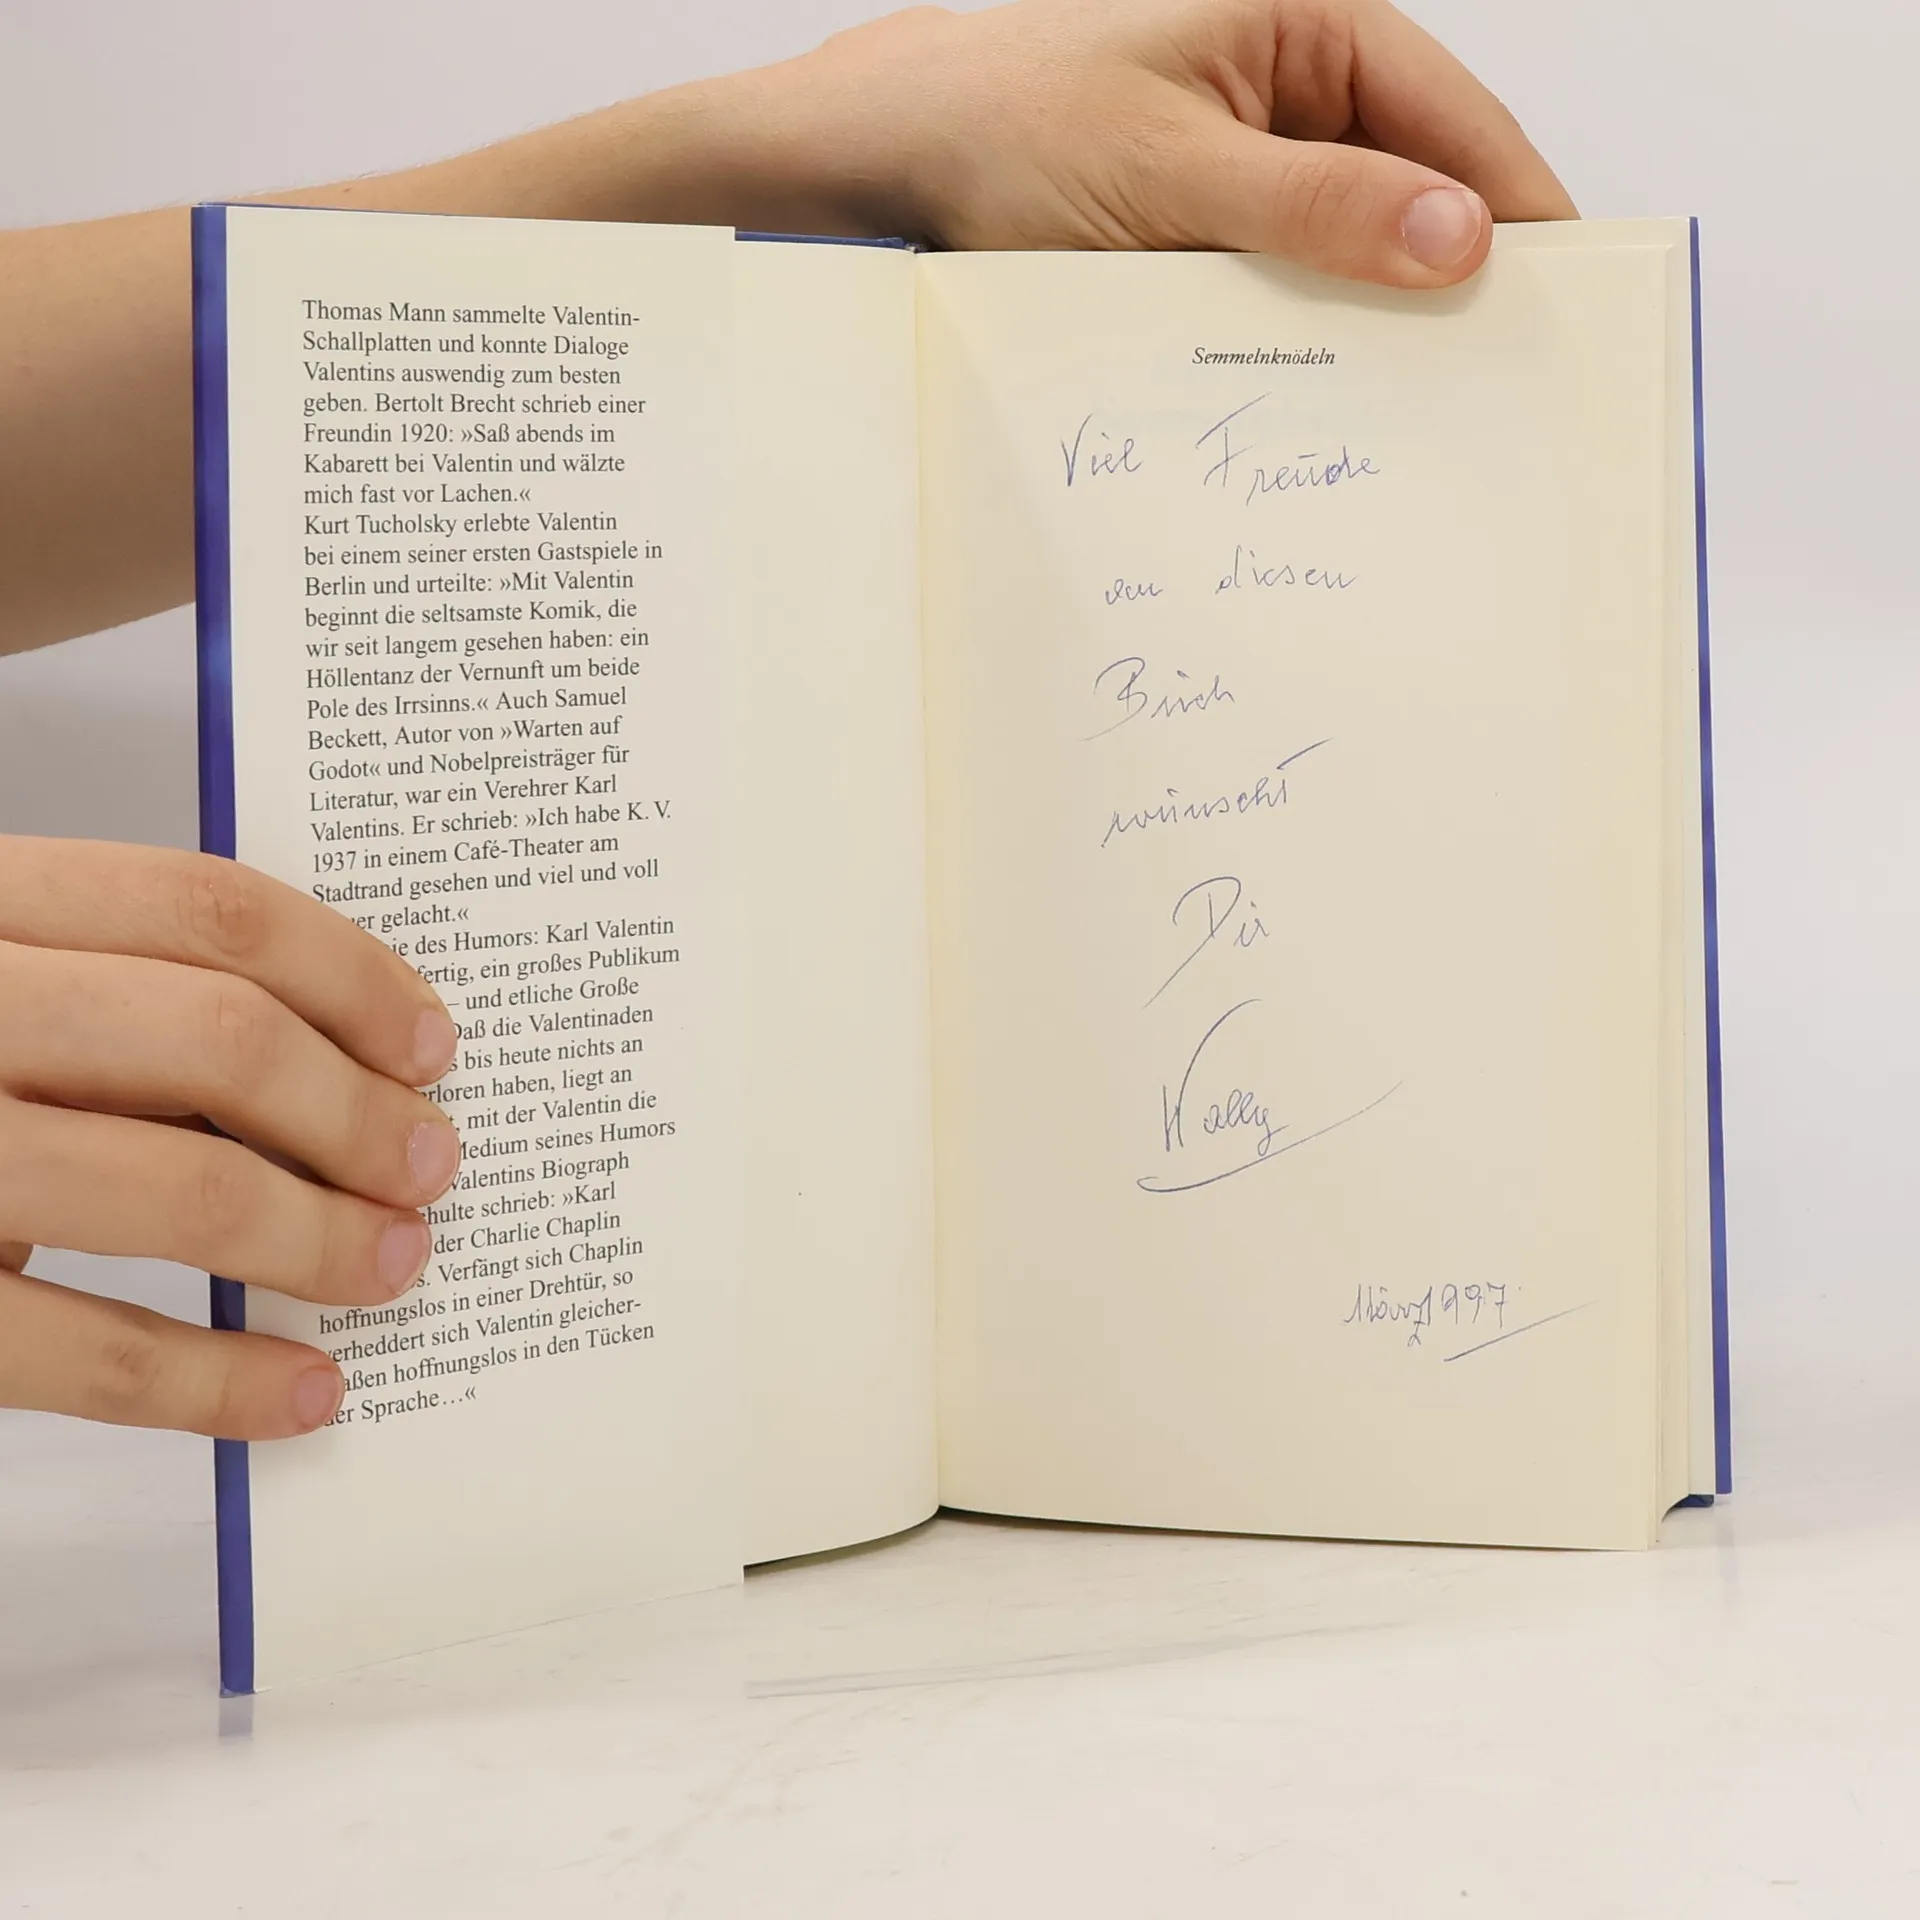 Thomas Mann sammelte Valentin-
Schallplatten und konnte Dialoge
Valentins auswendig zum besten
geben. Bertolt Brecht schrieb einer
Freundin 1920: »Saß abends im
Kabarett bei Valentin und wälzte
mich fast vor Lachen.«
Kurt Tucholsky erlebte Valentin
bei einem seiner ersten Gastspiele in
Berlin und urteilte: »Mit Valentin
beginnt die seltsamste Komik, die
wir seit langem gesehen haben: ein
Höllentanz der Vernunft um beide
Pole des Irrsinns.« Auch Samuel
Beckett, Autor von »Warten auf
Godot« und Nobelpreisträger für
Literatur, war ein Verehrer Karl
Valentins. Er schrieb: »Ich habe K. V.
1937 in einem Café-Theater am
Stadtrand gesehen und viel und voll
gelacht.«
des Humors: Karl Valentin
fertig, ein großes Publikum
– und etliche Große
Daß die Valentinaden
bis heute nichts an
liegt an
mit der Valentin die
Medium seines Humors
Valentins Biograph
schrieb: »Karl
der Charlie Chaplin
Verfängt sich Chaplin
hoffnungslos in einer Drehtür, so
verheddert sich Valentin gleicher-
hoffnungslos in den Tücken
der Sprache…«
Semmelnknödeln
Viel Freude
an diesen
Buch
wünscht
Dir
Wally
März 1997